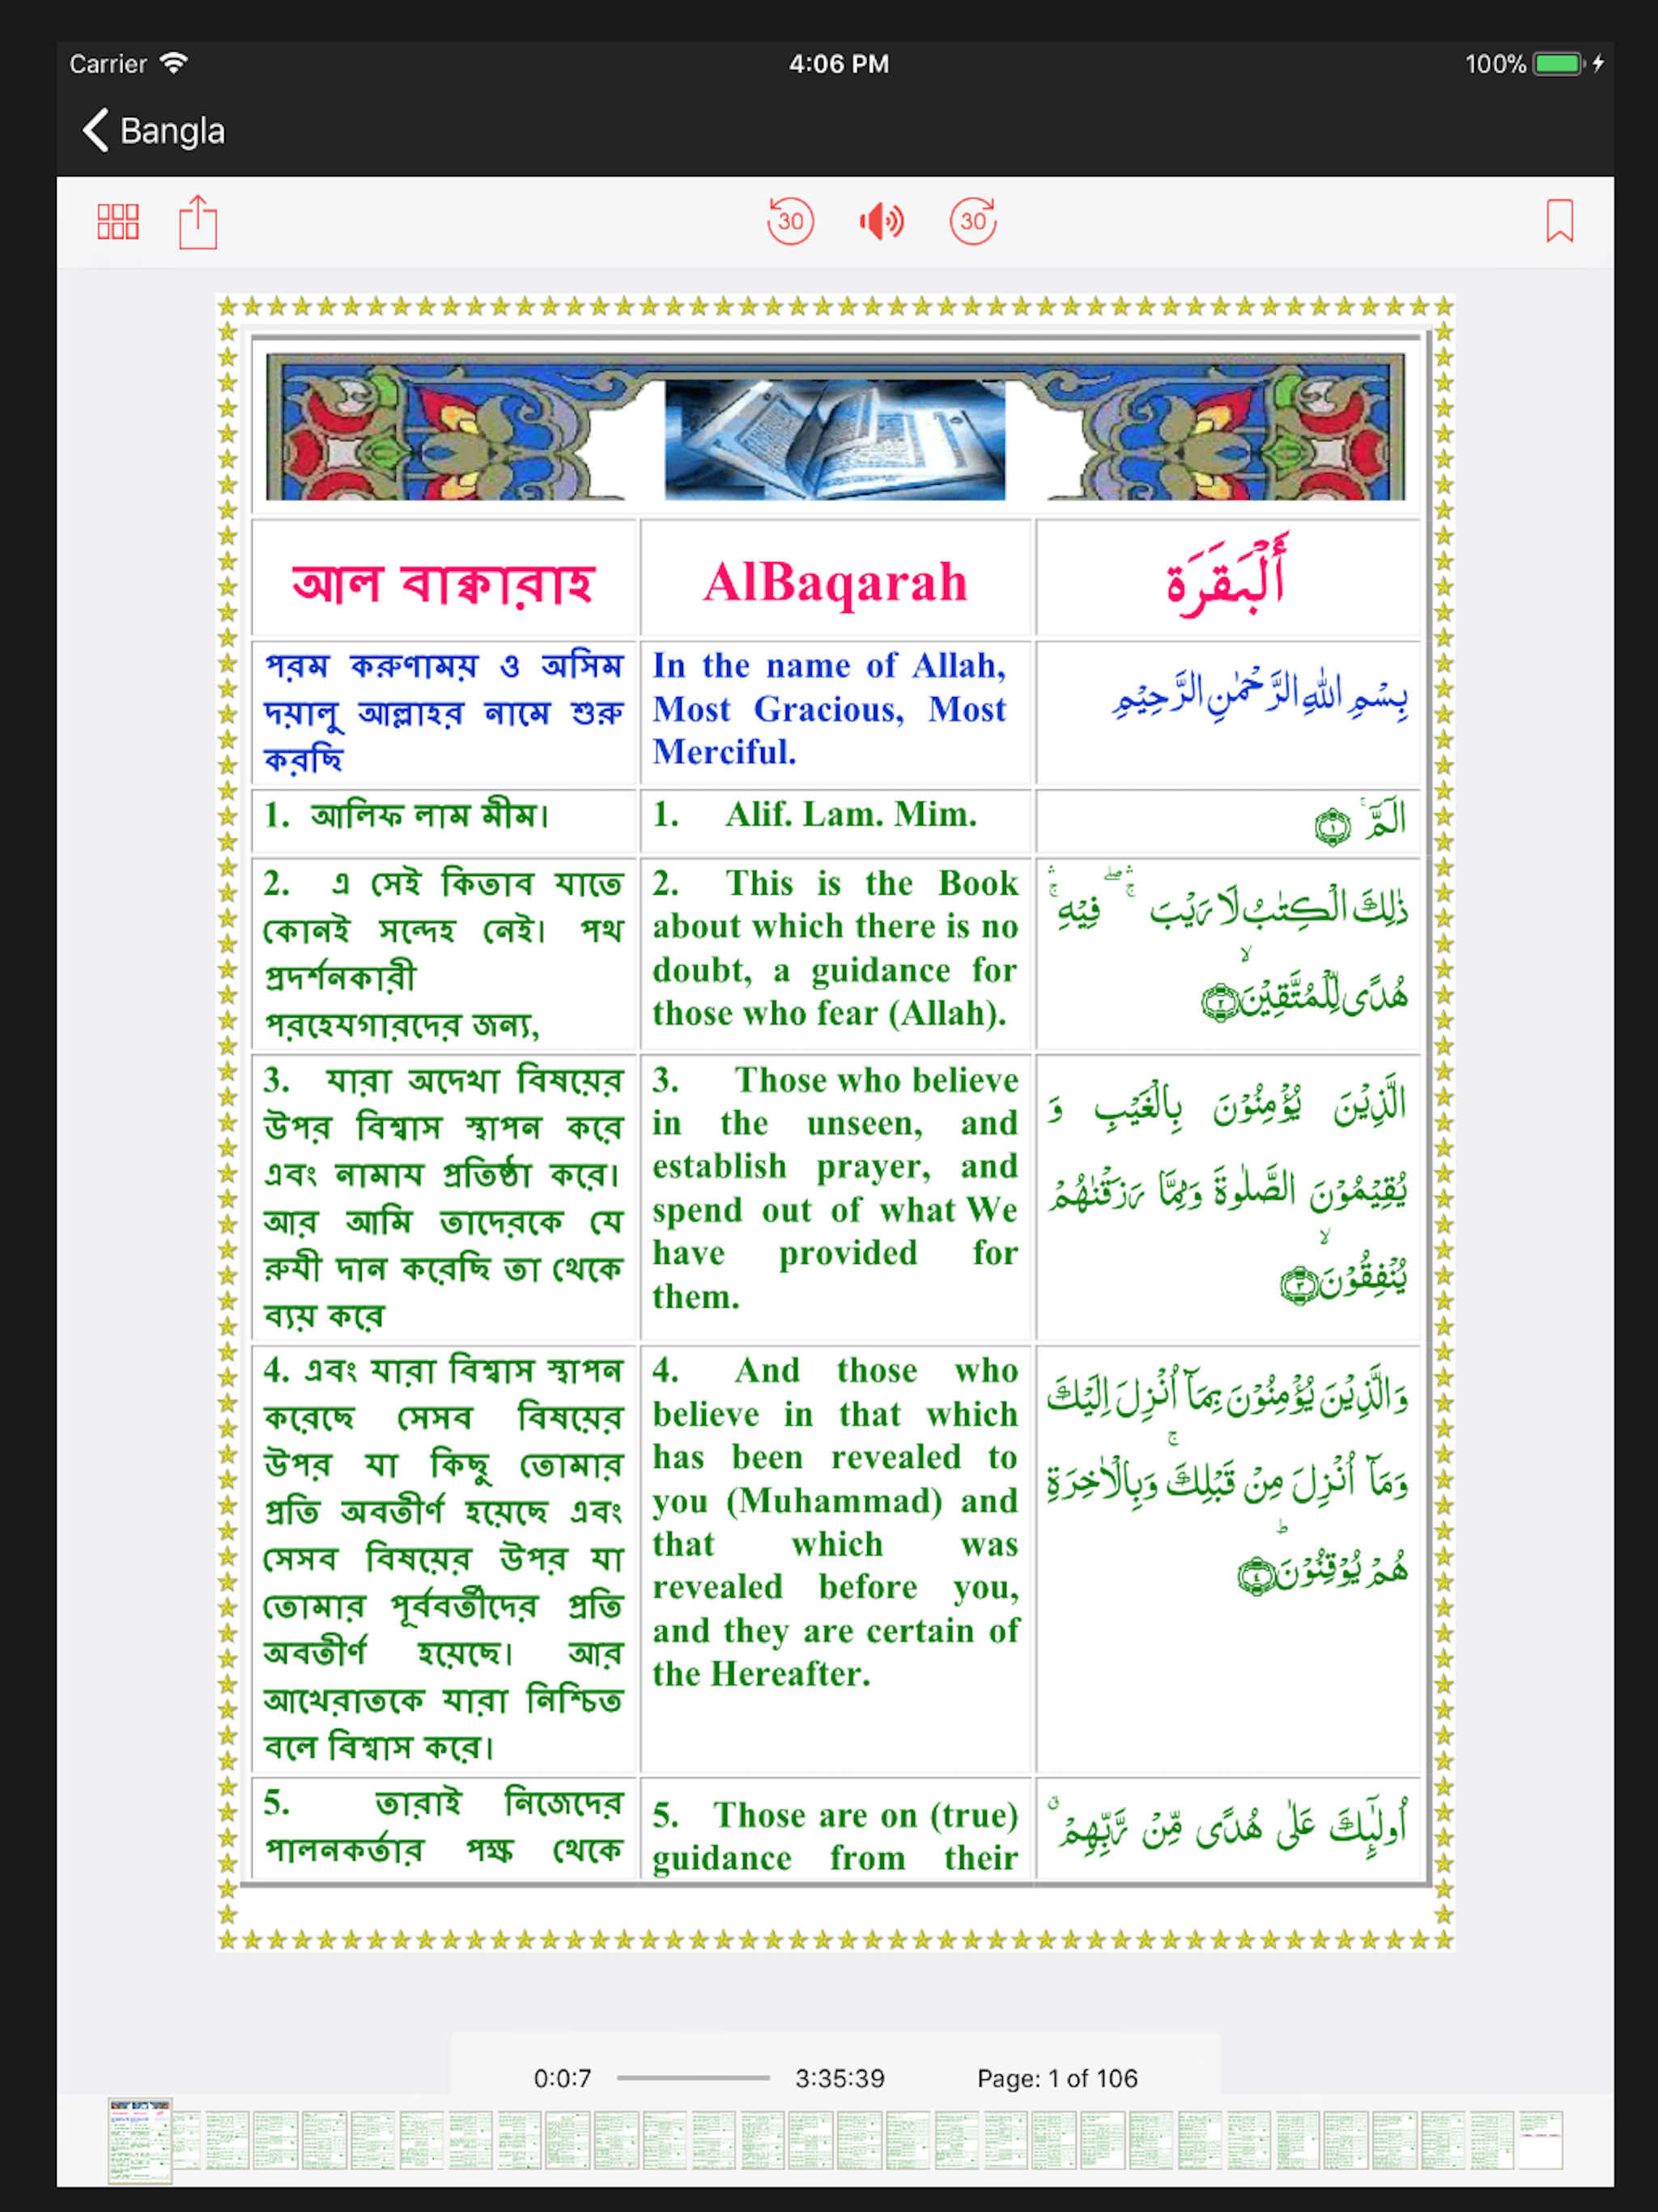 Carrier 4:06 PM 100%
Bangla
30 30
আল বাক্বারাহ
AlBaqarah
أَلْبَقَرَة
পরম করুণাময় ও অসিম
দয়ালু আল্লাহর নামে শুরু
করছি
In the name of Allah,
Most Gracious, Most
Merciful.
بِسْمِ اللهِ الرَّحْمٰنِ الرَّحِيْمِ
1. আলিফ লাম মীম।
1. Alif. Lam. Mim.
الٓمّٓ ۚ ﴿۱﴾
2. এ সেই কিতাব যাতে
কোনই সন্দেহ নেই। পথ
প্রদর্শনকারী
পরহেযগারদের জন্য,
2. This is the Book
about which there is no
doubt, a guidance for
those who fear (Allah).
ذٰلِكَ الْكِتٰبُ لَا رَيْبَ ۛۚ ۖ فِيْهِ ۛۚ
هُدًى لِّلْمُتَّقِيْنَ ۙ ﴿۲﴾
3. যারা অদেখা বিষয়ের
উপর বিশ্বাস স্থাপন করে
এবং নামায প্রতিষ্ঠা করে।
আর আমি তাদেরকে যে
রুযী দান করেছি তা থেকে
ব্যয় করে
3. Those who believe
in the unseen, and
establish prayer, and
spend out of what We
have provided for
them.
الَّذِيْنَ يُؤْمِنُوْنَ بِالْغَيْبِ وَ
يُقِيْمُوْنَ الصَّلٰوةَ وَمِمَّا رَزَقْنٰهُمْ
يُنْفِقُوْنَ ۙ ﴿۳﴾
4. এবং যারা বিশ্বাস স্থাপন
করেছে সেসব বিষয়ের
উপর যা কিছু তোমার
প্রতি অবতীর্ণ হয়েছে এবং
সেসব বিষয়ের উপর যা
তোমার পূর্ববর্তীদের প্রতি
অবতীর্ণ হয়েছে। আর
আখেরাতকে যারা নিশ্চিত
বলে বিশ্বাস করে।
4. And those who
believe in that which
has been revealed to
you (Muhammad) and
that which was
revealed before you,
and they are certain of
the Hereafter.
وَالَّذِيْنَ يُؤْمِنُوْنَ بِمَآ اُنْزِلَ اِلَيْكَ
وَمَآ اُنْزِلَ مِنْ قَبْلِكَ ۚ وَبِالْاٰخِرَةِ
هُمْ يُوْقِنُوْنَ ؕ ﴿۴﴾
5. তারাই নিজেদের
পালনকর্তার পক্ষ থেকে
5. Those are on (true)
guidance from their
اُولٰٓئِكَ عَلٰى هُدًى مِّنْ رَّبِّهِمْ ۗ
0:0:7 3:35:39 Page: 1 of 106